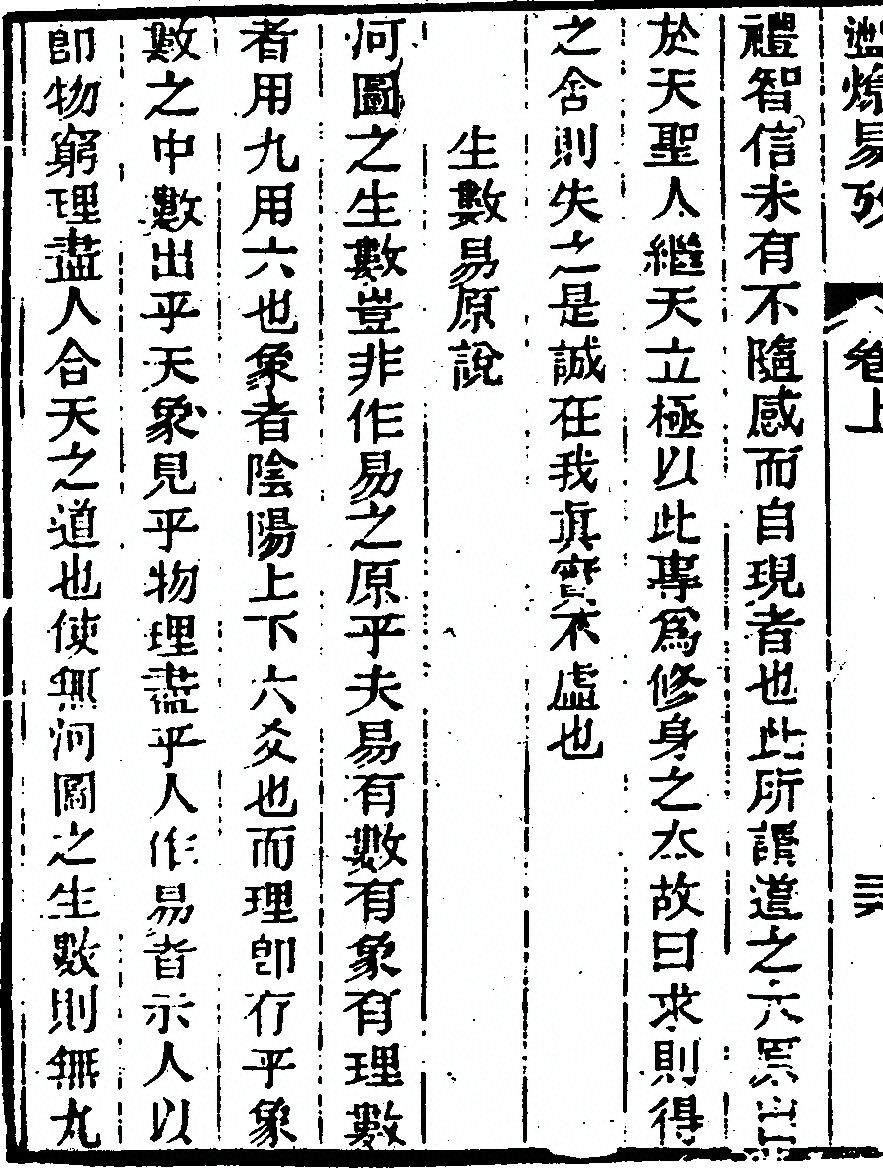 易 卷上
禮智信未有不隨感而自現者也此所謂道之大原出
於天聖人繼天立極以此專爲修身之本故曰求則得
之舍則失之是誠在我眞實不虛也
生數易原說
河圖之生數豈非作易之原乎夫易有數有象有理數
者用九用六也象者陰陽上下六爻也而理卽存乎象
數之中數出乎天象見乎物理盡乎人作易者示人以
卽物窮理盡人合天之道也使無河圖之生數則無九